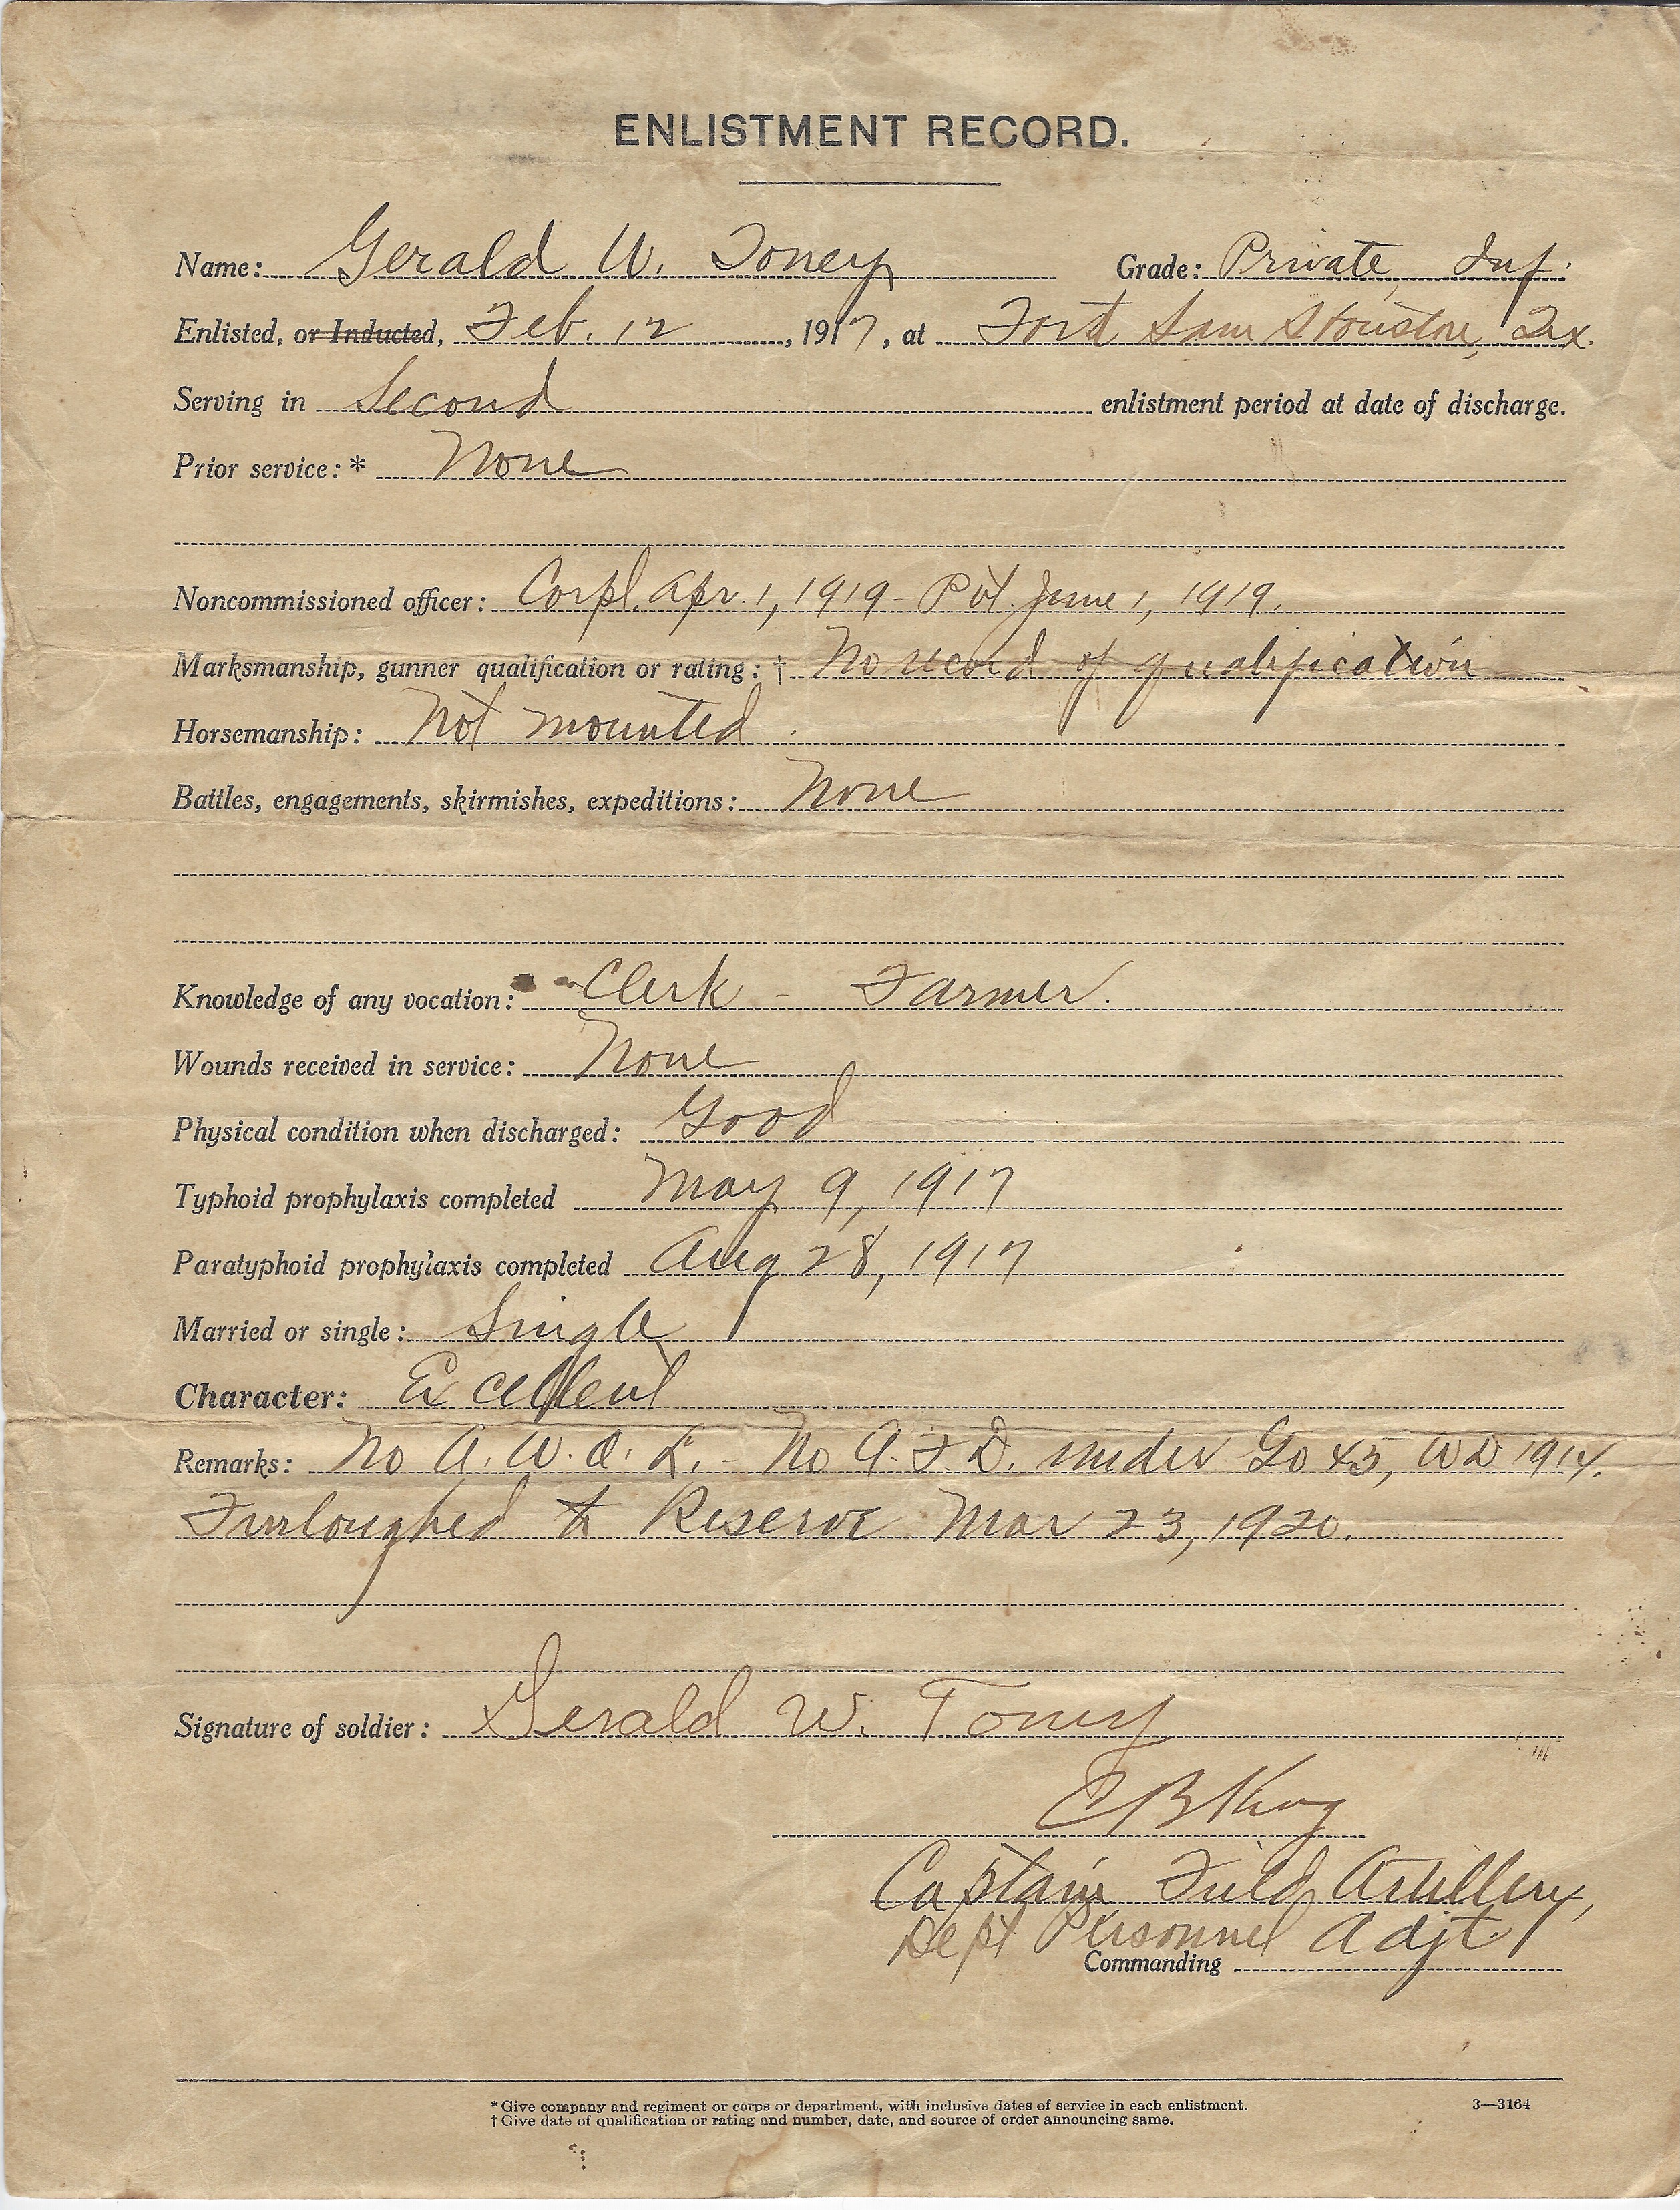 ENLISTMENT RECORD.
Name: Gerald W. Toney Grade: Private, Inf.
Enlisted, or Inducted, Feb. 12, 1917, at Fort Sam Houston, Tex.
Serving in Second enlistment period at date of discharge.
Prior service:* None
Noncommissioned officer: Corpl. Apr. 1, 1919 - Pvt. June 1, 1919.
Marksmanship, gunner qualification or rating:† No record of qualification
Horsemanship: Not mounted.
Battles, engagements, skirmishes, expeditions: None
Knowledge of any vocation: Clerk - Farmer.
Wounds received in service: None
Physical condition when discharged: Good
Typhoid prophylaxis completed May 9, 1917
Paratyphoid prophylaxis completed Aug 28, 1917
Married or single: Single
Character: Excellent
Remarks: No A.W.O.L. - No A.F.D. under GO 45, WD 1914.
Furloughed to Reserve Mar 23, 1920.
Signature of soldier: Gerald W. Toney
King
Captain Field Artillery,
Dept Personnel Adjt.
Commanding
* Give company and regiment or corps or department, with inclusive dates of service in each enlistment. 3—3164
† Give date of qualification or rating and number, date, and source of order announcing same.